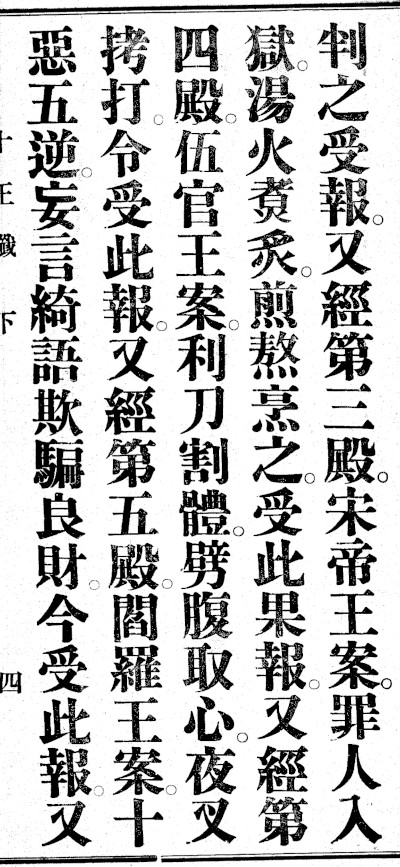 判之受報。又經第三殿。宋帝王案。罪人入
獄。湯火煑炙。煎熬烹之。受此果報。又經第
四殿。伍官王案。利刀割體。劈腹取心。夜叉
拷打。令受此報。又經第五殿。閻羅王案。十
惡五逆。妄言綺語欺騙良財。今受此報。又
十王懺下 四